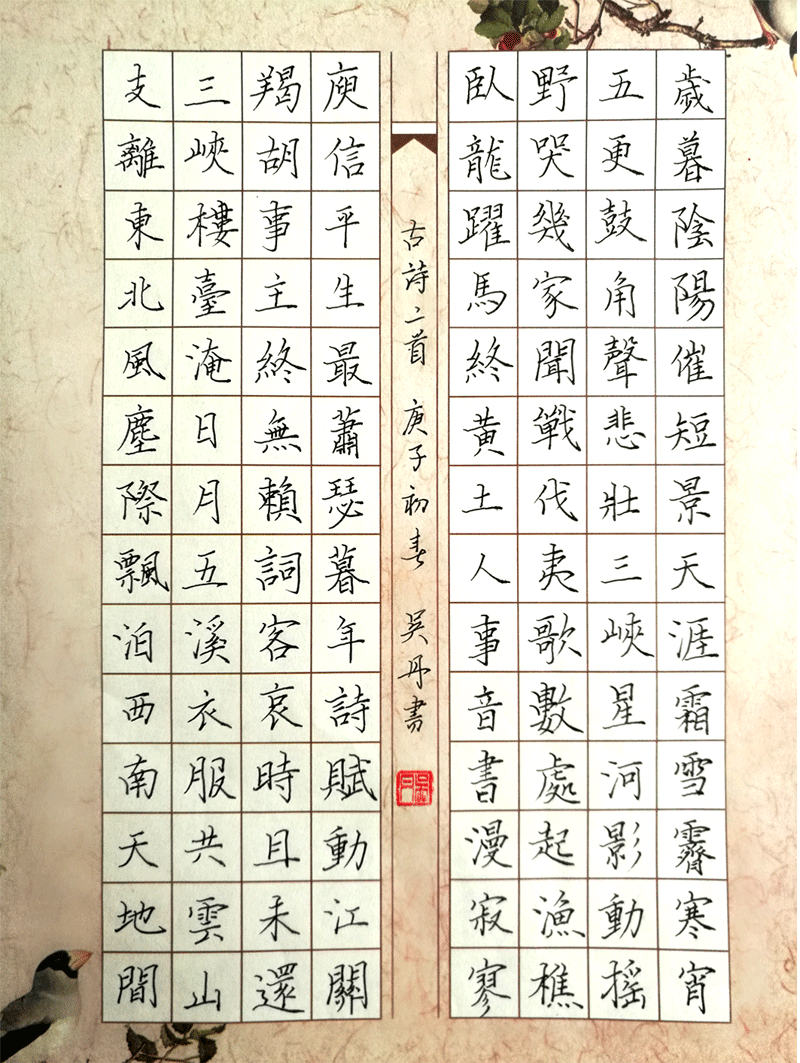 歲暮陰陽催短景天涯霜雪霽寒宵
五更鼓角聲悲壯三峽星河影動搖
野哭幾家聞戰伐夷歌數處起漁樵
臥龍躍馬終黄土人事音書漫寂寥
支離東北風塵際飄泊西南天地間
三峽樓臺淹日月五溪衣服共雲山
羯胡事主終無賴詞客哀時且未還
庾信平生最蕭瑟暮年詩賦動江關
古詩二首 庚子初春 吳丹書
吳丹